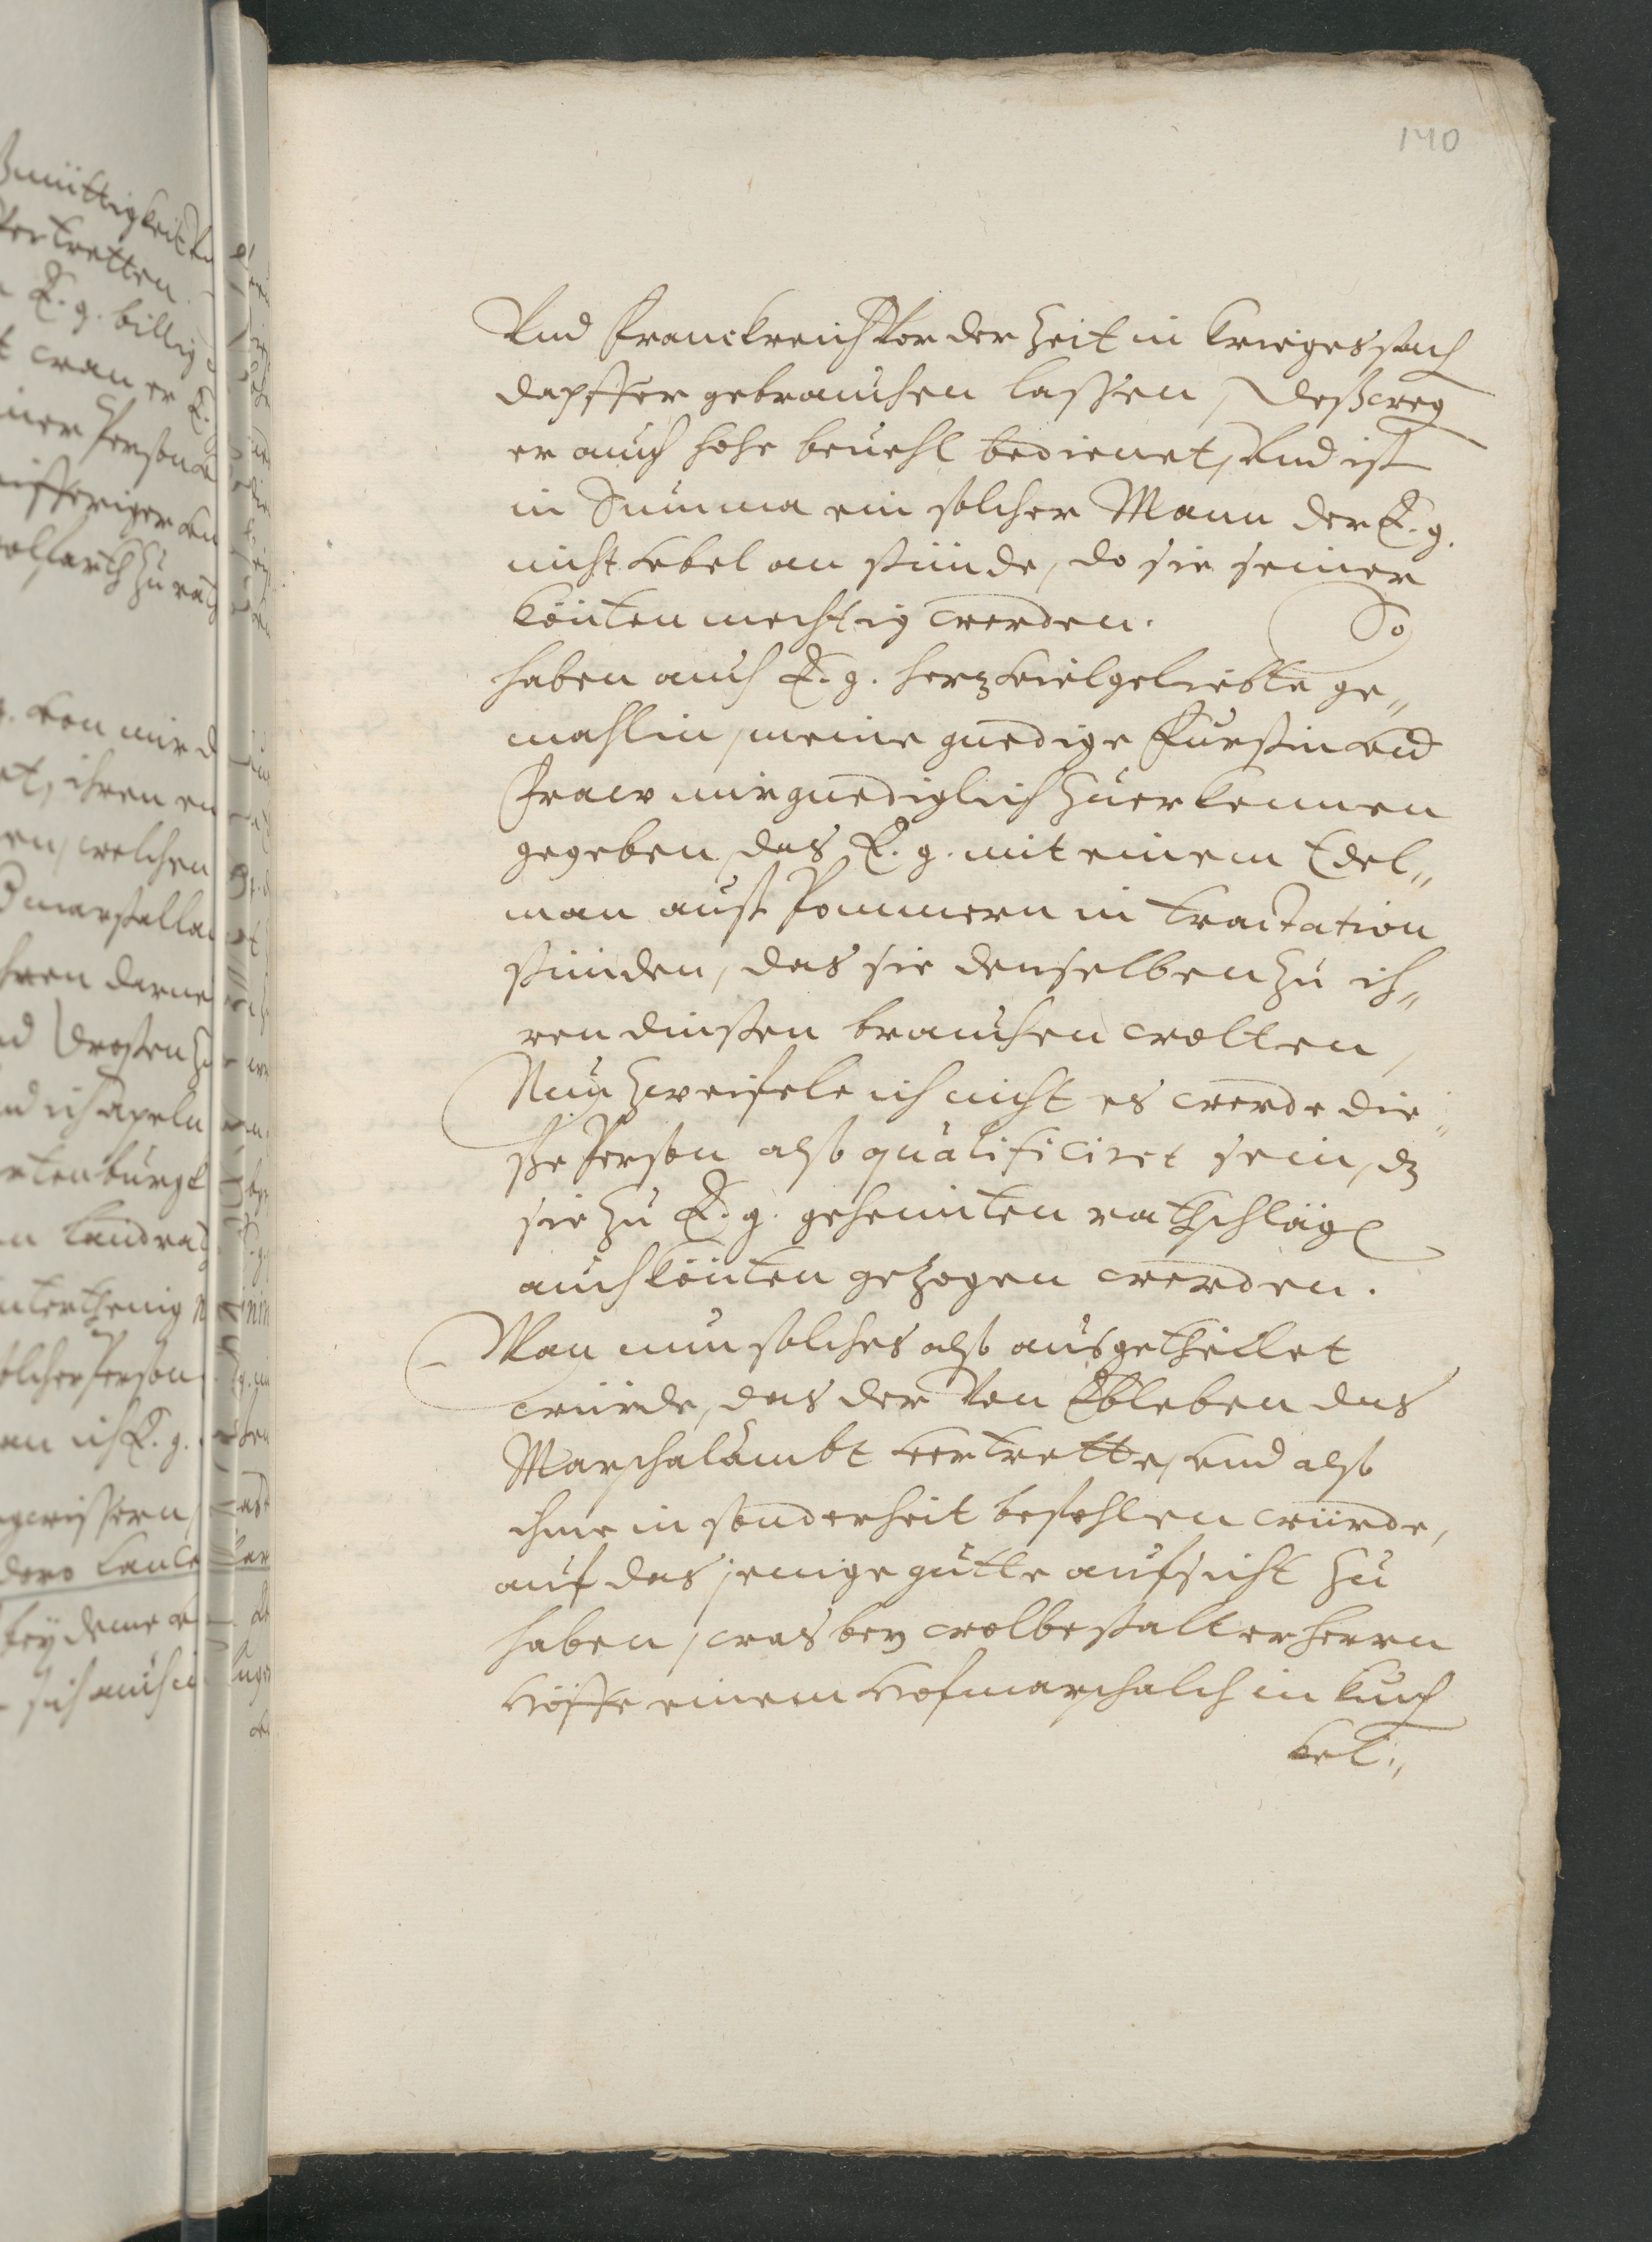 140
Vnd Franckreich Vor der Zeit in Kriegessach
dapffer gebrauchen laßen, Deßweg
er auch hohe beuehl bedienet, Vnd ist
in Summa ein solcher Mann der E. g.
nicht vbel an stünde, do sie seiner
könten mechtig werden. So
haben auch E. g. hertzvielgeliebte ge„
mahlin, meine gnedige Fürstin vnd
Fraw mir gnediglich Zuerkennen
gegeben, das E. g. mit einem Edel„
man auß Pommern in tractation
stünden, das sie denselben Zu ih„
ren dinsten brauchen wolten,
Nun Zweifele ich nicht es werde die„
ße Person also qualificiret sein, dz
sie Zu E. g. geheimten rathschläg
auch könten geZogen werden.
Wan nun solches also ausgetheilet
würde, das der Von Ebleben das
Marschalambt vertrette, vnd also
ihme in sonderheit befohlen würde,
auf das jenige gutte aufsicht Zu
haben, was bey wolbestalter herrn
Höffe einem Hofmarschalch in Kuch
kel„